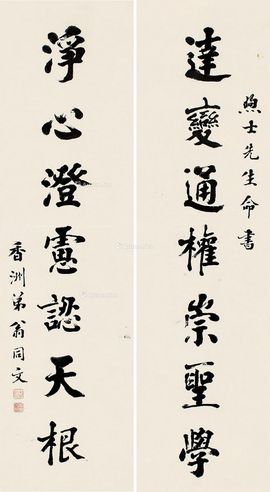 達變通權崇聖學
煦士先生命書
淨心澄慮認天根
香洲弟翁同文